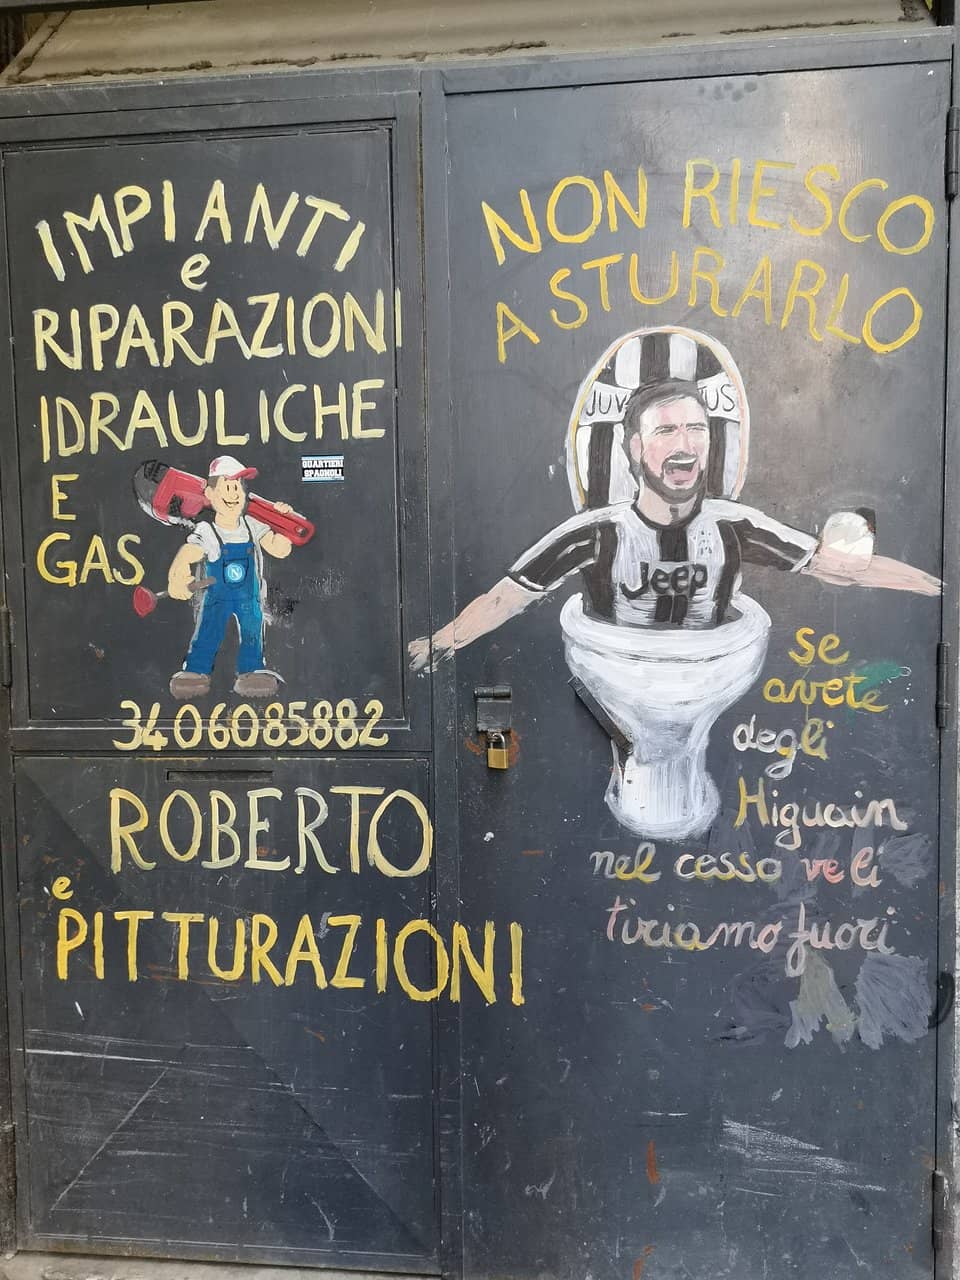 IMPIANTI
e
RIPARAZIONI
IDRAULICHE
E
GAS
QUARTIERI
SPAGNOLI
N
3406085882
ROBERTO
e
PITTURAZIONI
NON RIESCO
A STURARLO
JUV US
Jeep
se
avete
degli
Higuain
nel cesso ve li
tiriamo fuori